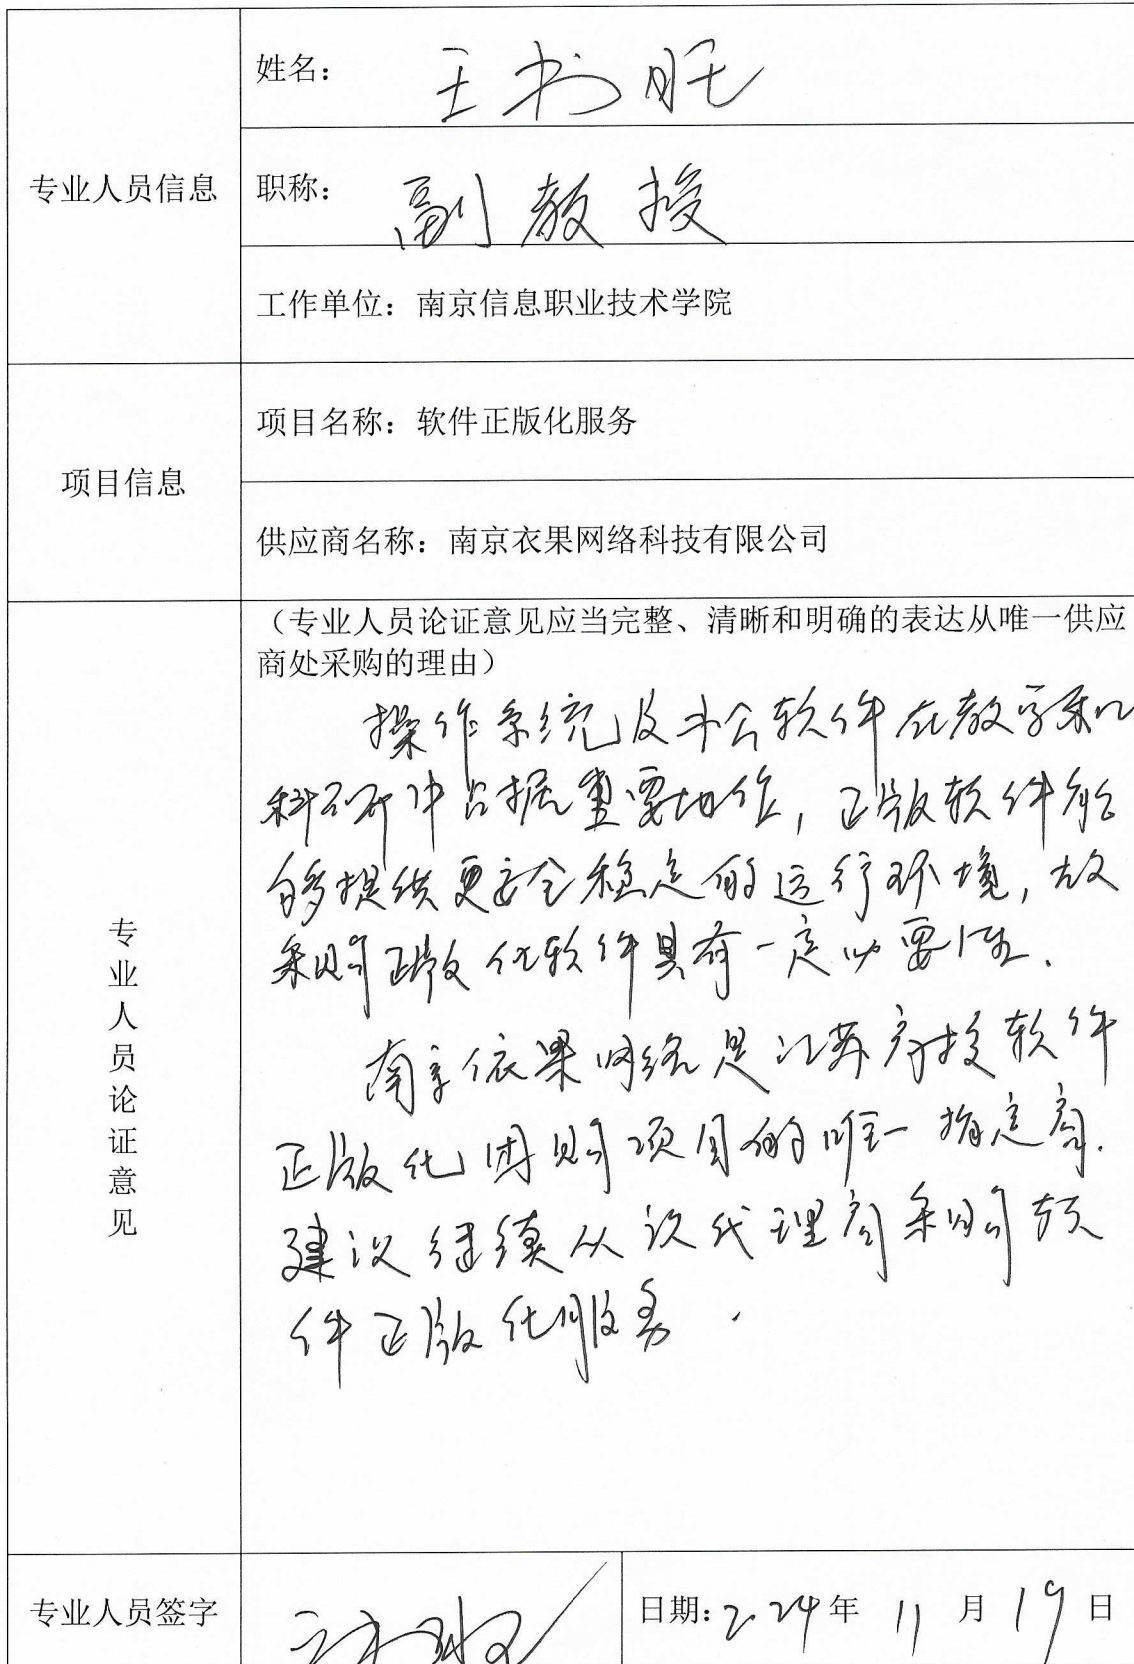 姓名：王书旺
专业人员信息
职称：副教授
工作单位：南京信息职业技术学院
项目信息
项目名称：软件正版化服务
供应商名称：南京衣果网络科技有限公司
专业人员论证意见
（专业人员论证意见应当完整、清晰和明确的表达从唯一供应
商处采购的理由）
操作系统及办公软件在教学和
科研中占据重要地位，正版软件能
够提供更安全稳定的运行环境，故
采购正版化软件具有一定必要性.
南京依果网络是江苏高校软件
正版化团购项目的唯一指定商.
建议继续从该代理商采购软
件正版化服务.
专业人员签字
日期：2024年 11 月 19 日